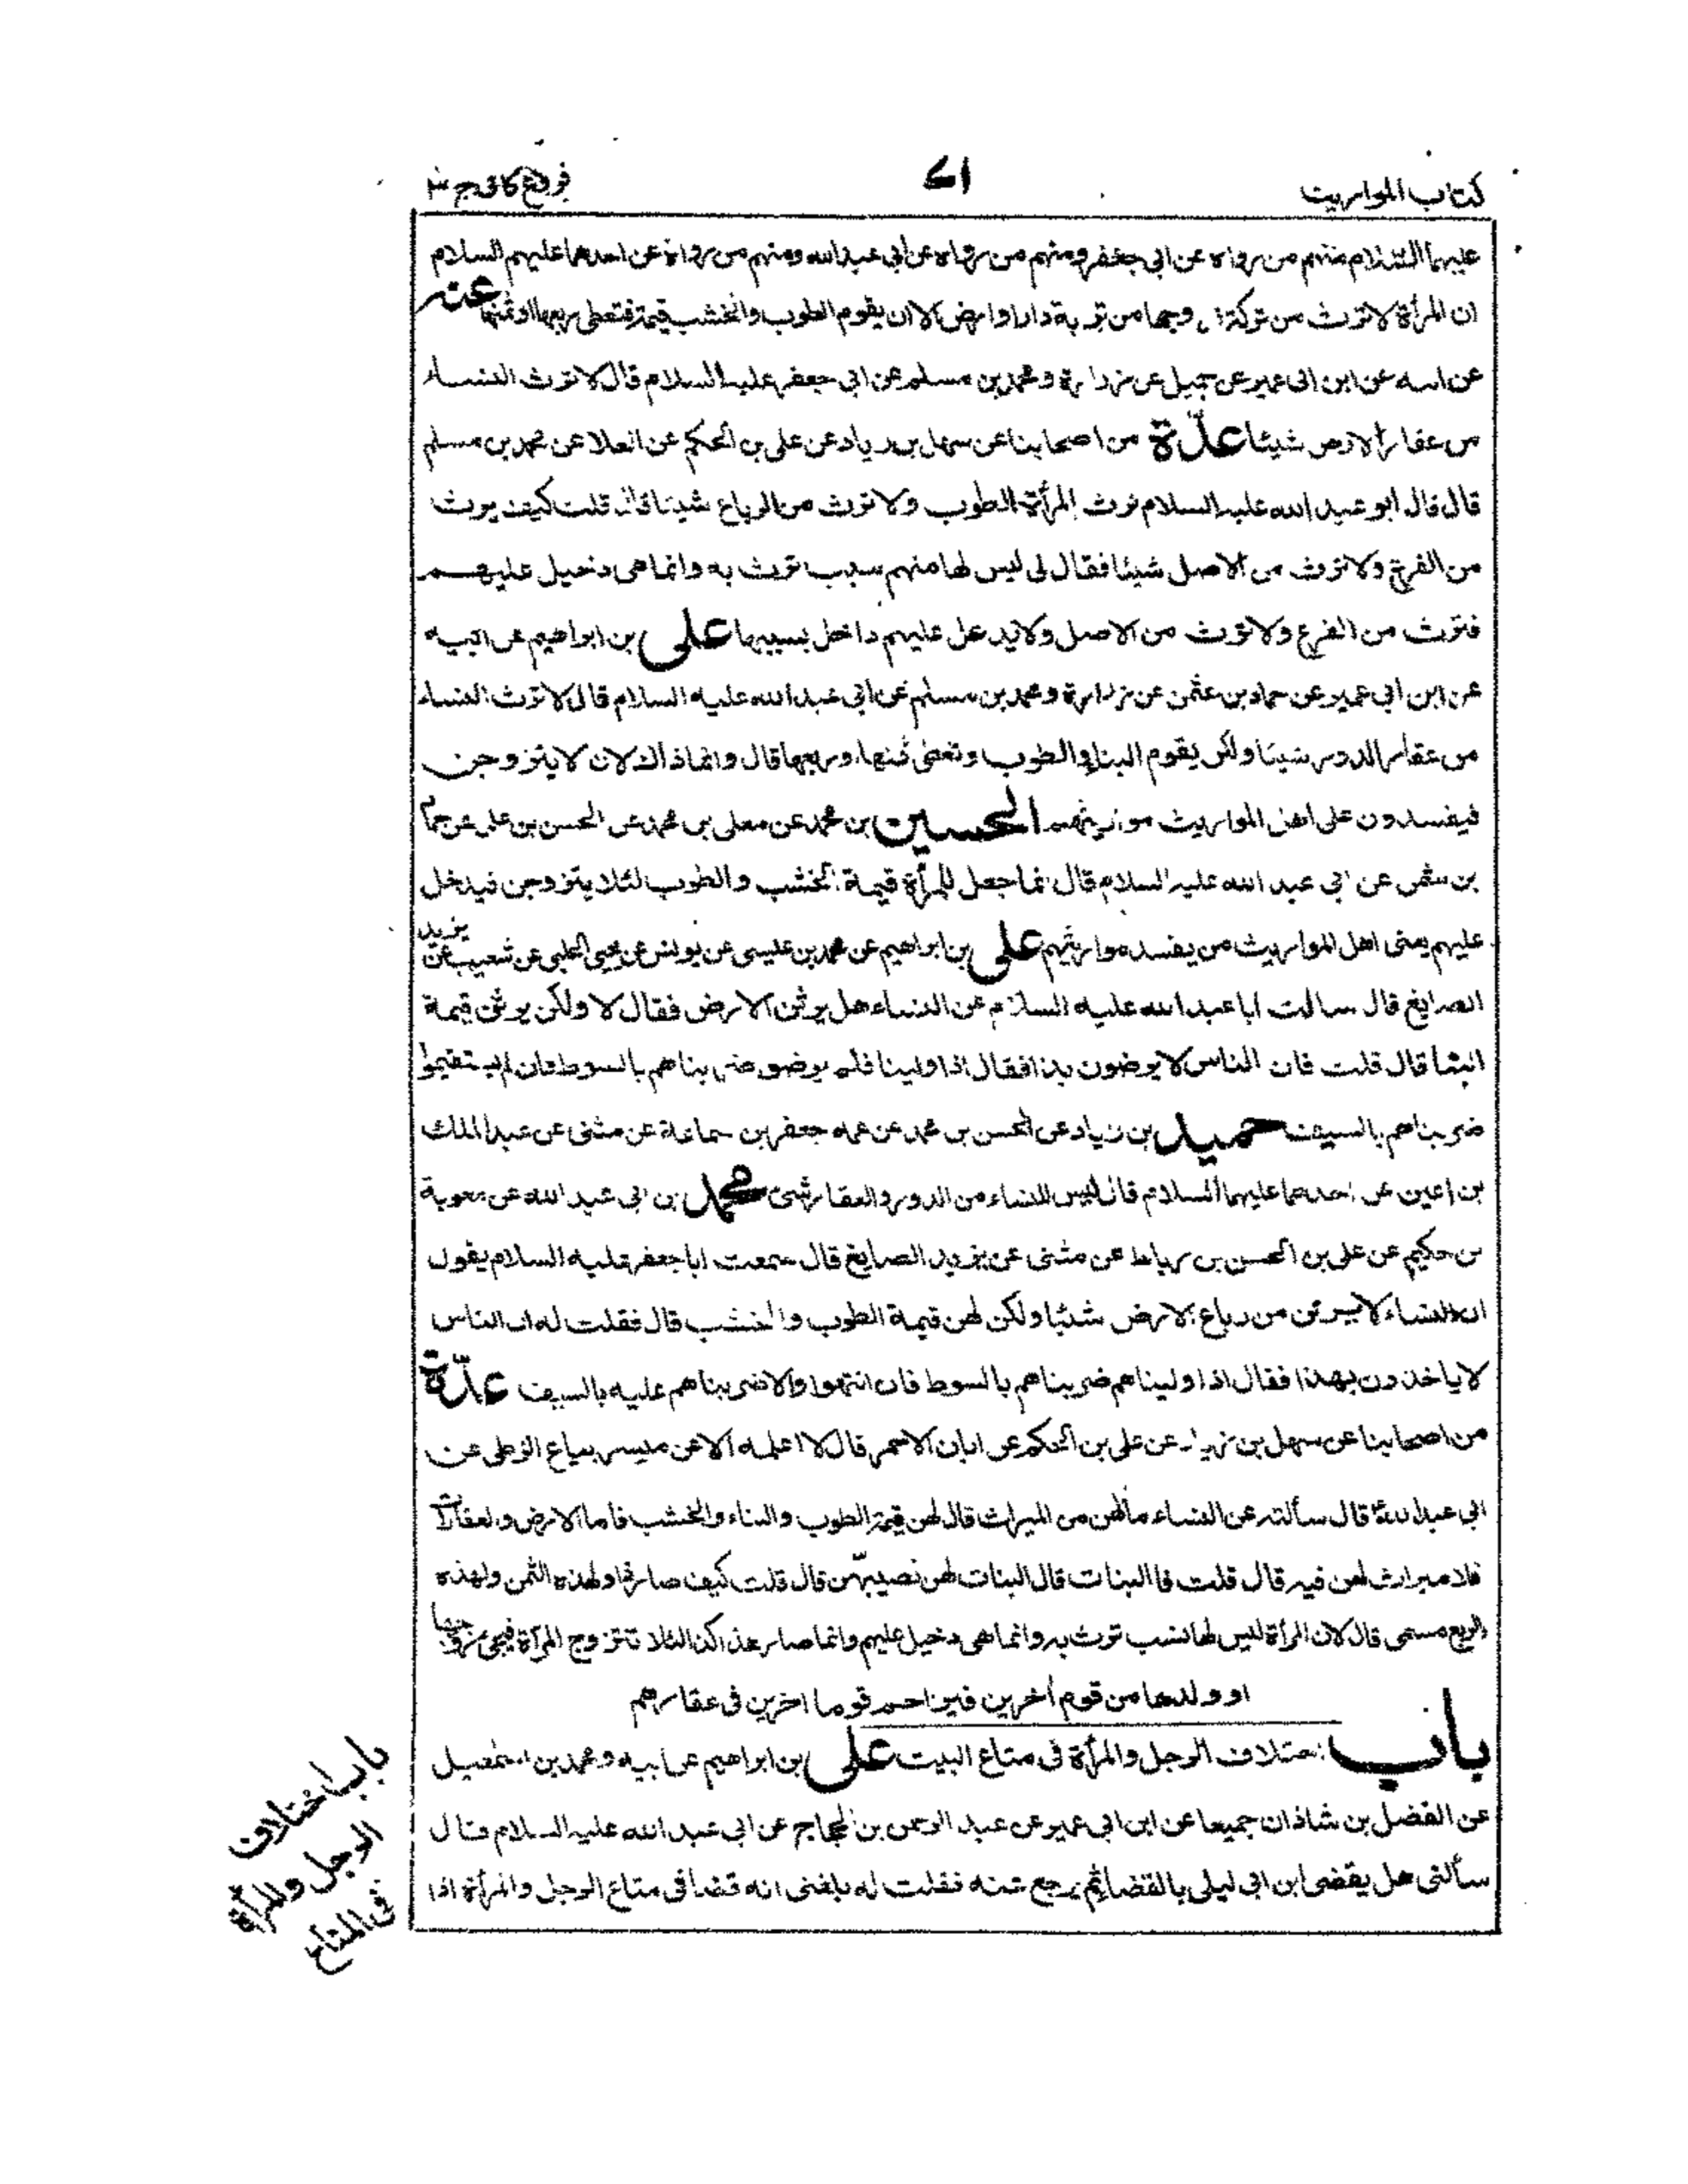 كتاب المواريث
٧١
فروع كافي ج ٣
عليهما السلام منهم من رواه عن ابي جعفر ومنهم من رواه عن ابي عبد الله ومنهم من رواه عن احدهما عليهم السلام
ان المرأة لا ترث من تركة زوجها من تربة دار او ارض الا ان يقوم الطوب والخشب قيمة فتعطى ربعها او ثمنها عنه
عن ابيه عن ابن ابي عمير عن جميل عن زرارة ومحمد بن مسلم عن ابي جعفر عليه السلام قال لا ترث النساء
من عقار الارض شيئا عدّة من اصحابنا عن سهل بن زياد عن علي بن الحكم عن العلا عن محمد بن مسلم
قال قال ابو عبد الله عليه السلام ترث المرأة الطوب ولا ترث من الرباع شيئا قال قلت كيف يرث
من الفرع ولا ترث من الاصل شيئا فقال لي ليس لها منهم سبب ترث به وانما هي دخيل عليهم
فترث من الفرع ولا ترث من الاصل ولا يدخل عليهم داخل بسببها علي بن ابراهيم عن ابيه
عن ابن ابي عمير عن حماد بن عثمن عن زرارة ومحمد بن مسلم عن ابي عبد الله عليه السلام قال لا ترث النساء
من عقار الدور شيئا ولكن يقوم البناء والطوب وتعطى ثمنها وربعها قال وانما ذاك لان لا يتزوجن
فيفسدون على اهل المواريث مواريثهم الحسين بن محمد عن معلى بن محمد عن الحسن بن علي عن حماد
بن عثمن عن ابي عبد الله عليه السلام قال انما جعل للمرأة قيمة الخشب والطوب لئلا يتزوجن فيدخل
عليهم يعني اهل المواريث من يفسد مواريثهم علي بن ابراهيم عن محمد بن عيسى عن يونس عن يحيى الحلبي عن شعيب عن يزيد
الصايغ قال سالت ابا عبد الله عليه السلام عن النساء هل يرثن الارض فقال لا ولكن يرثن قيمة
البنا قال قلت فان الناس لا يرضون بذا فقال اذا ولينا فلم يرضوا ضربناهم بالسوط فان لم يستقيموا
ضربناهم بالسيف حميد بن زياد عن الحسن بن محمد عن عمه جعفر بن سماعة عن مثنى عن عبد الملك
بن اعين عن احدهما عليهما السلام قال ليس للنساء من الدور والعقار شئ محمد بن ابي عبد الله عن معوية
بن حكيم عن علي بن الحسن بن رباط عن مثنى عن يزيد الصايغ قال سمعت ابا جعفر عليه السلام يقول
ان النساء لا يرثن من رباع الارض شيئا ولكن لهن قيمة الطوب والخشب قال فقلت له ان الناس
لا ياخذون بهذا فقال اذا وليناهم ضربناهم بالسوط فان انتهوا والا ضربناهم عليه بالسيف عدّة
من اصحابنا عن سهل بن زياد عن علي بن الحكم عن ابان الاحمر قال لا اعلمه الا عن ميسر بياع الزطي عن
ابي عبد الله ع قال سألته عن النساء ما لهن من الميراث قال لهن قيمة الطوب والبناء والخشب فاما الارض والعقارات
فلا ميراث لهن فيه قال قلت فالبنات قال البنات لهن نصيبهن قال قلت كيف صار ذا ولهذه الثمن ولهذه
الربع مسمى قال لان المرأة ليس لها نسب ترث به وانما هي دخيل عليهم وانما صار هذا كذا لئلا تتزوج المرأة فيجئ زوجها
او ولدها من قوم اخرين فيزاحم قوما اخرين في عقارهم
باب اختلاف الرجل والمرأة في متاع البيت علي بن ابراهيم عن ابيه ومحمد بن اسمعيل
عن الفضل بن شاذان جميعا عن ابن ابي عمير عن عبد الرحمن بن الحجاج عن ابي عبد الله عليه السلام قال
سألني هل يقضي ابن ابي ليلى بالقضا ثم يرجع عنه فقلت له بلغني انه قضا في متاع الرجل والمرأة اذا
باب اختلاف
الرجل والمرأة
في المتاع